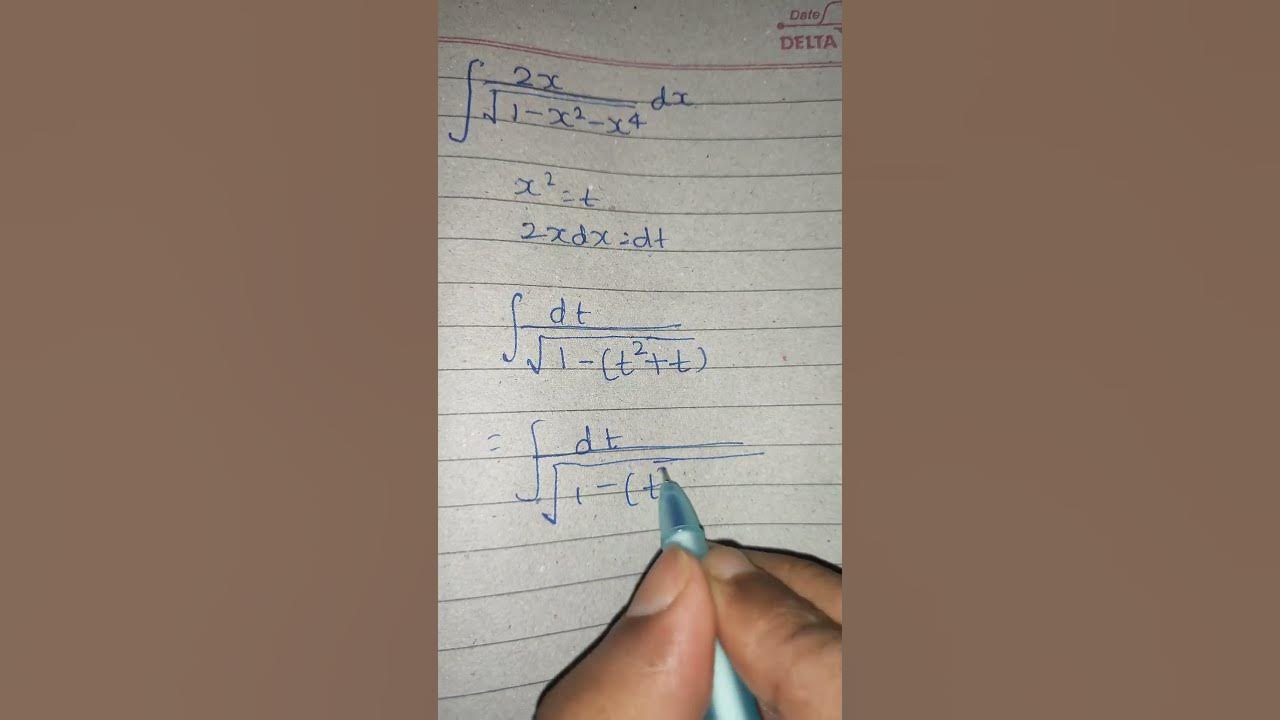 Date
DELTA
∫ 2x / √(1-x²-x⁴) dx
x² = t
2xdx = dt
∫ dt / √(1-(t²+t))
= ∫ dt / √(1-(t